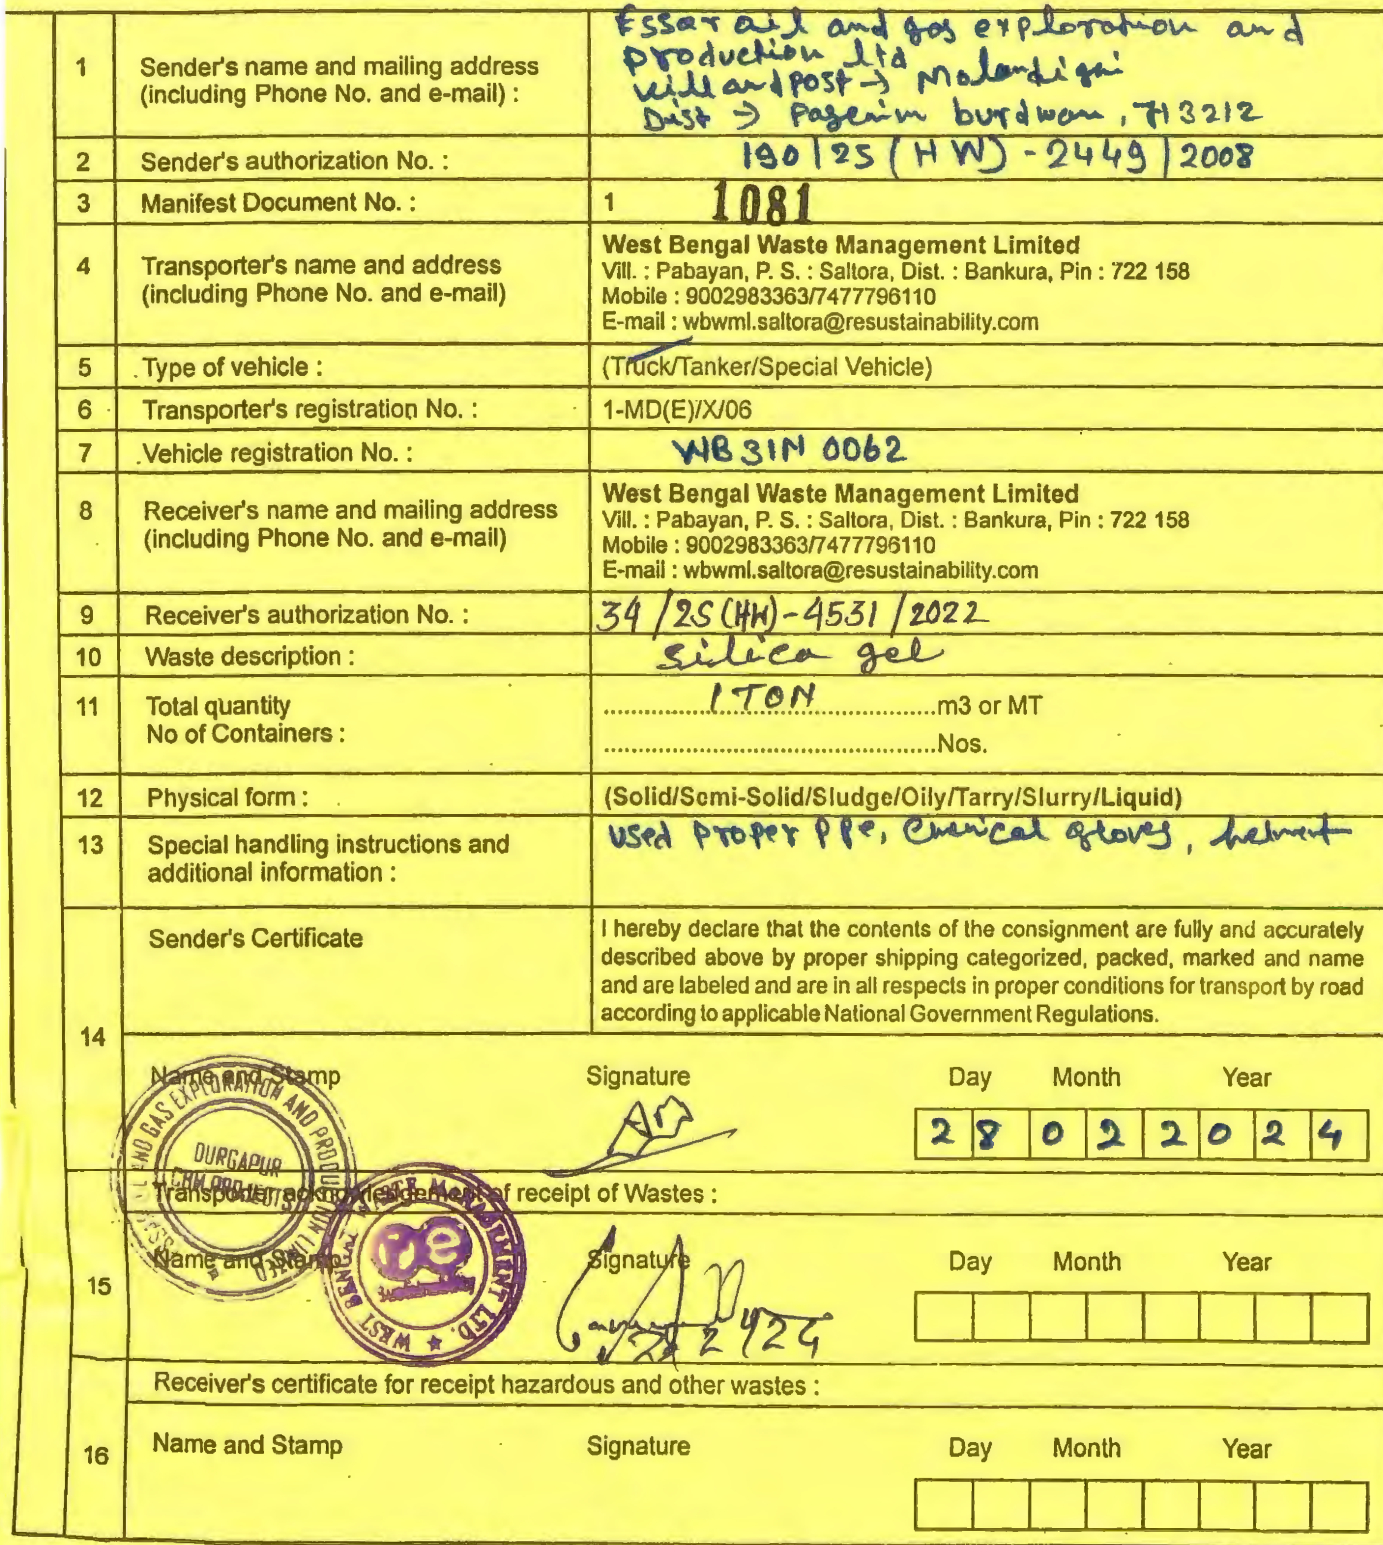 1
Sender's name and mailing address
(including Phone No. and e-mail) :
Essar oil and gas exploration and
production ltd
vill and post → Molandighi
Dist → Paschim burdwan, 713212
2
Sender's authorization No. :
190/2S(HW)-2449/2008
3
Manifest Document No. :
1 1081
4
Transporter's name and address
(including Phone No. and e-mail)
West Bengal Waste Management Limited
Vill. : Pabayan, P. S. : Saltora, Dist. : Bankura, Pin : 722 158
Mobile : 9002983363/7477796110
E-mail : wbwml.saltora@resustainability.com
5
Type of vehicle :
(Truck/Tanker/Special Vehicle)
6
Transporter's registration No. :
1-MD(E)/X/06
7
Vehicle registration No. :
WB31N 0062
8
Receiver's name and mailing address
(including Phone No. and e-mail)
West Bengal Waste Management Limited
Vill. : Pabayan, P. S. : Saltora, Dist. : Bankura, Pin : 722 158
Mobile : 9002983363/7477796110
E-mail : wbwml.saltora@resustainability.com
9
Receiver's authorization No. :
34/2S(HW)-4531/2022
10
Waste description :
silica gel
11
Total quantity
No of Containers :
1 TON m3 or MT
Nos.
12
Physical form :
(Solid/Semi-Solid/Sludge/Oily/Tarry/Slurry/Liquid)
13
Special handling instructions and
additional information :
used proper PPe, Chemical gloves, helmet
14
Sender's Certificate
I hereby declare that the contents of the consignment are fully and accurately
described above by proper shipping categorized, packed, marked and name
and are labeled and are in all respects in proper conditions for transport by road
according to applicable National Government Regulations.
Name and Stamp Signature Day Month Year
28 02 2024
OIL AND GAS EXPLORATION AND PRODUCTION LIMITED
DURGAPUR
CBM PROJECTS
Transporter acknowledgement of receipt of Wastes :
15
Name and Stamp Signature Day Month Year
WEST BENGAL WASTE MANAGEMENT LTD.
re
Sustainability
Receiver's certificate for receipt hazardous and other wastes :
16
Name and Stamp Signature Day Month Year